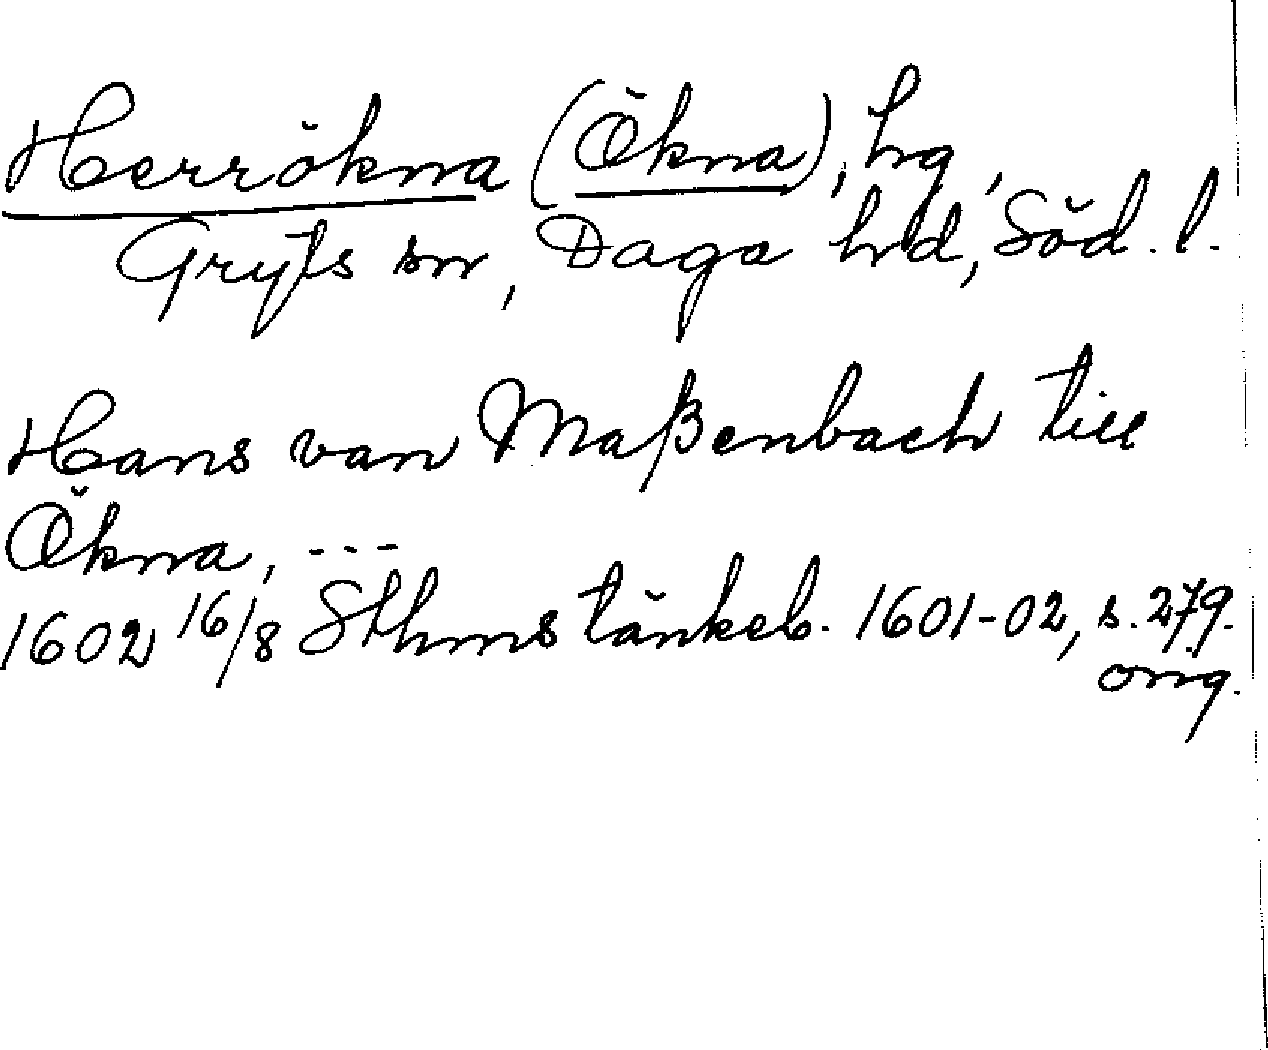 Herrökna (Ökna), hg,
Gryts sn, Daga hd, Söd. l.
Hans van Maßenbach till
Ökna, ---
1602 16/8 Sthms tänkeb. 1601-02, s. 279.
orig.